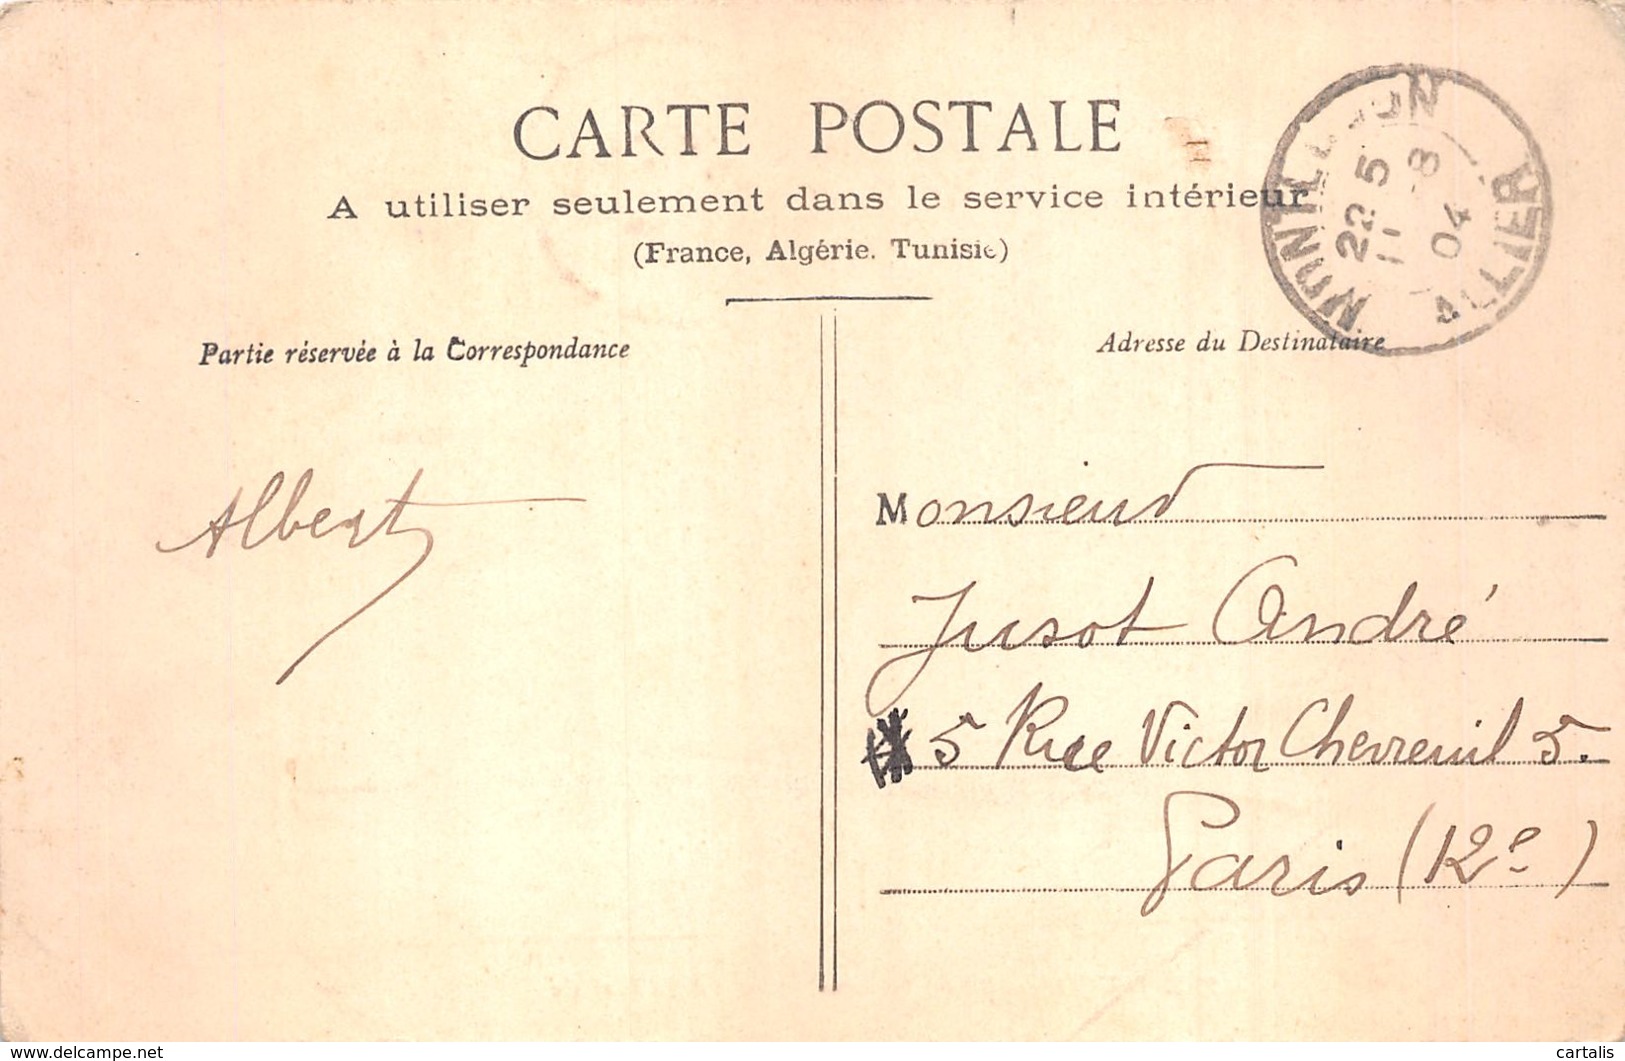 CARTE POSTALE
A utiliser seulement dans le service intérieur
(France, Algérie. Tunisie)
Partie réservée à la Correspondance
Adresse du Destinataire
ALLIER
22 5
11 -8
04
Albert
Monsieur
Jusot André
5 Rue Victor Chevreuil 5.
Paris (12e)
delcampe.net
cartalis